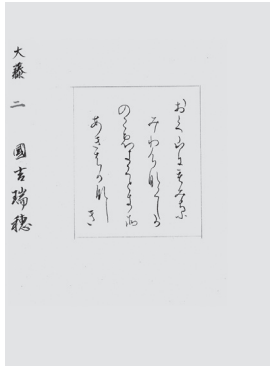 おく山にもみちふ
みわけなくしか
のこゑきくときそ
あきはかなしき
大藤 二 國吉瑞穂